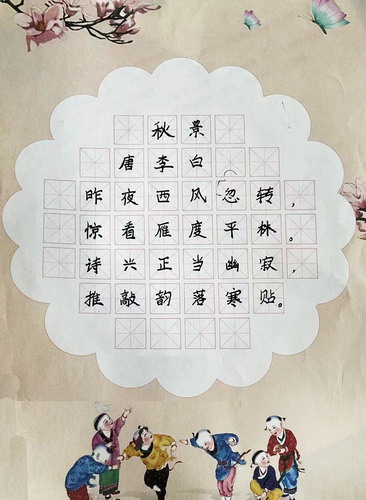 秋景
唐李白
昨夜西风忽转，
惊看雁度平林。
诗兴正当幽寂，
推敲韵落寒贴。